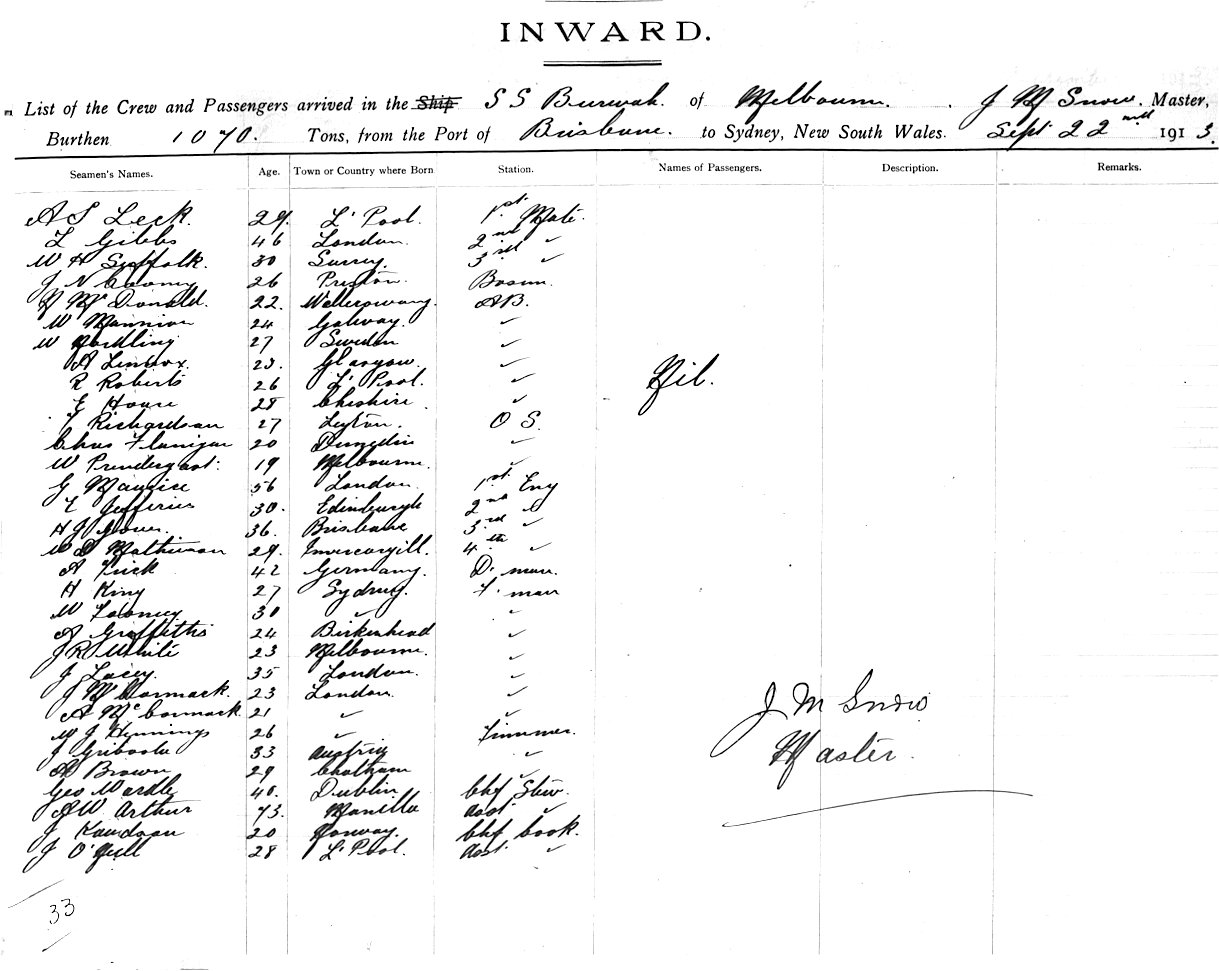 INWARD.
List of the Crew and Passengers arrived in the Ship SS Burwah of Melbourne. J M Snow. Master,
Burthen 1070. Tons, from the Port of Brisbane. to Sydney, New South Wales. Sept 22nd 1913.
Seamen's Names. Age. Town or Country where Born Station. Names of Passengers. Description. Remarks.
A S Leck 29. L'Pool. 1st Mate.
L Gibbs 46 London. 2nd ✓
W H Suffolk. 30 Surrey. 3rd ✓
J N 26 Preston. Bosun.
McDonald. 22. Wallerawang. AB.
W Mannion 24 Galway. ✓
W 27 Sweden ✓
A Lennox. 23. Glasgow. ✓
R Roberts 26 L'Pool. ✓
E House 28 Cheshire. ✓
Nil.
T Richardson 27 Leyton. O S.
Chas Flanigan 20 Dunedin ✓
W Prendergast. 19 Melbourne. ✓
G Maurice 56 London. 1st Eng
E Jefferies 30. Edinburgh 2nd ✓
H J 36. Brisbane 3rd ✓
W D Mathieson 29. Invercargill. 4th ✓
A 42 Germany. D. man.
H King 27 Sydney. F. man
W Looney 30 ✓ ✓
A Griffiths 24 Birkenhead ✓
J R White 23 Melbourne. ✓
J Lacey. 35 London. ✓
J McCormack. 23 London. ✓
A McCormack. 21 ✓ ✓
W J Hennings 26 ✓ Trimmer.
J 33 Austria ✓
A Brown 29 Chatham ✓
Geo Wardle 40. Dublin. Chf Stew.
A W Arthur 43. Manilla Asst ✓
J 20 Norway. Chf Cook.
J O'Neill 28 L'Pool. Asst. ✓
J M Snow
Master.
33